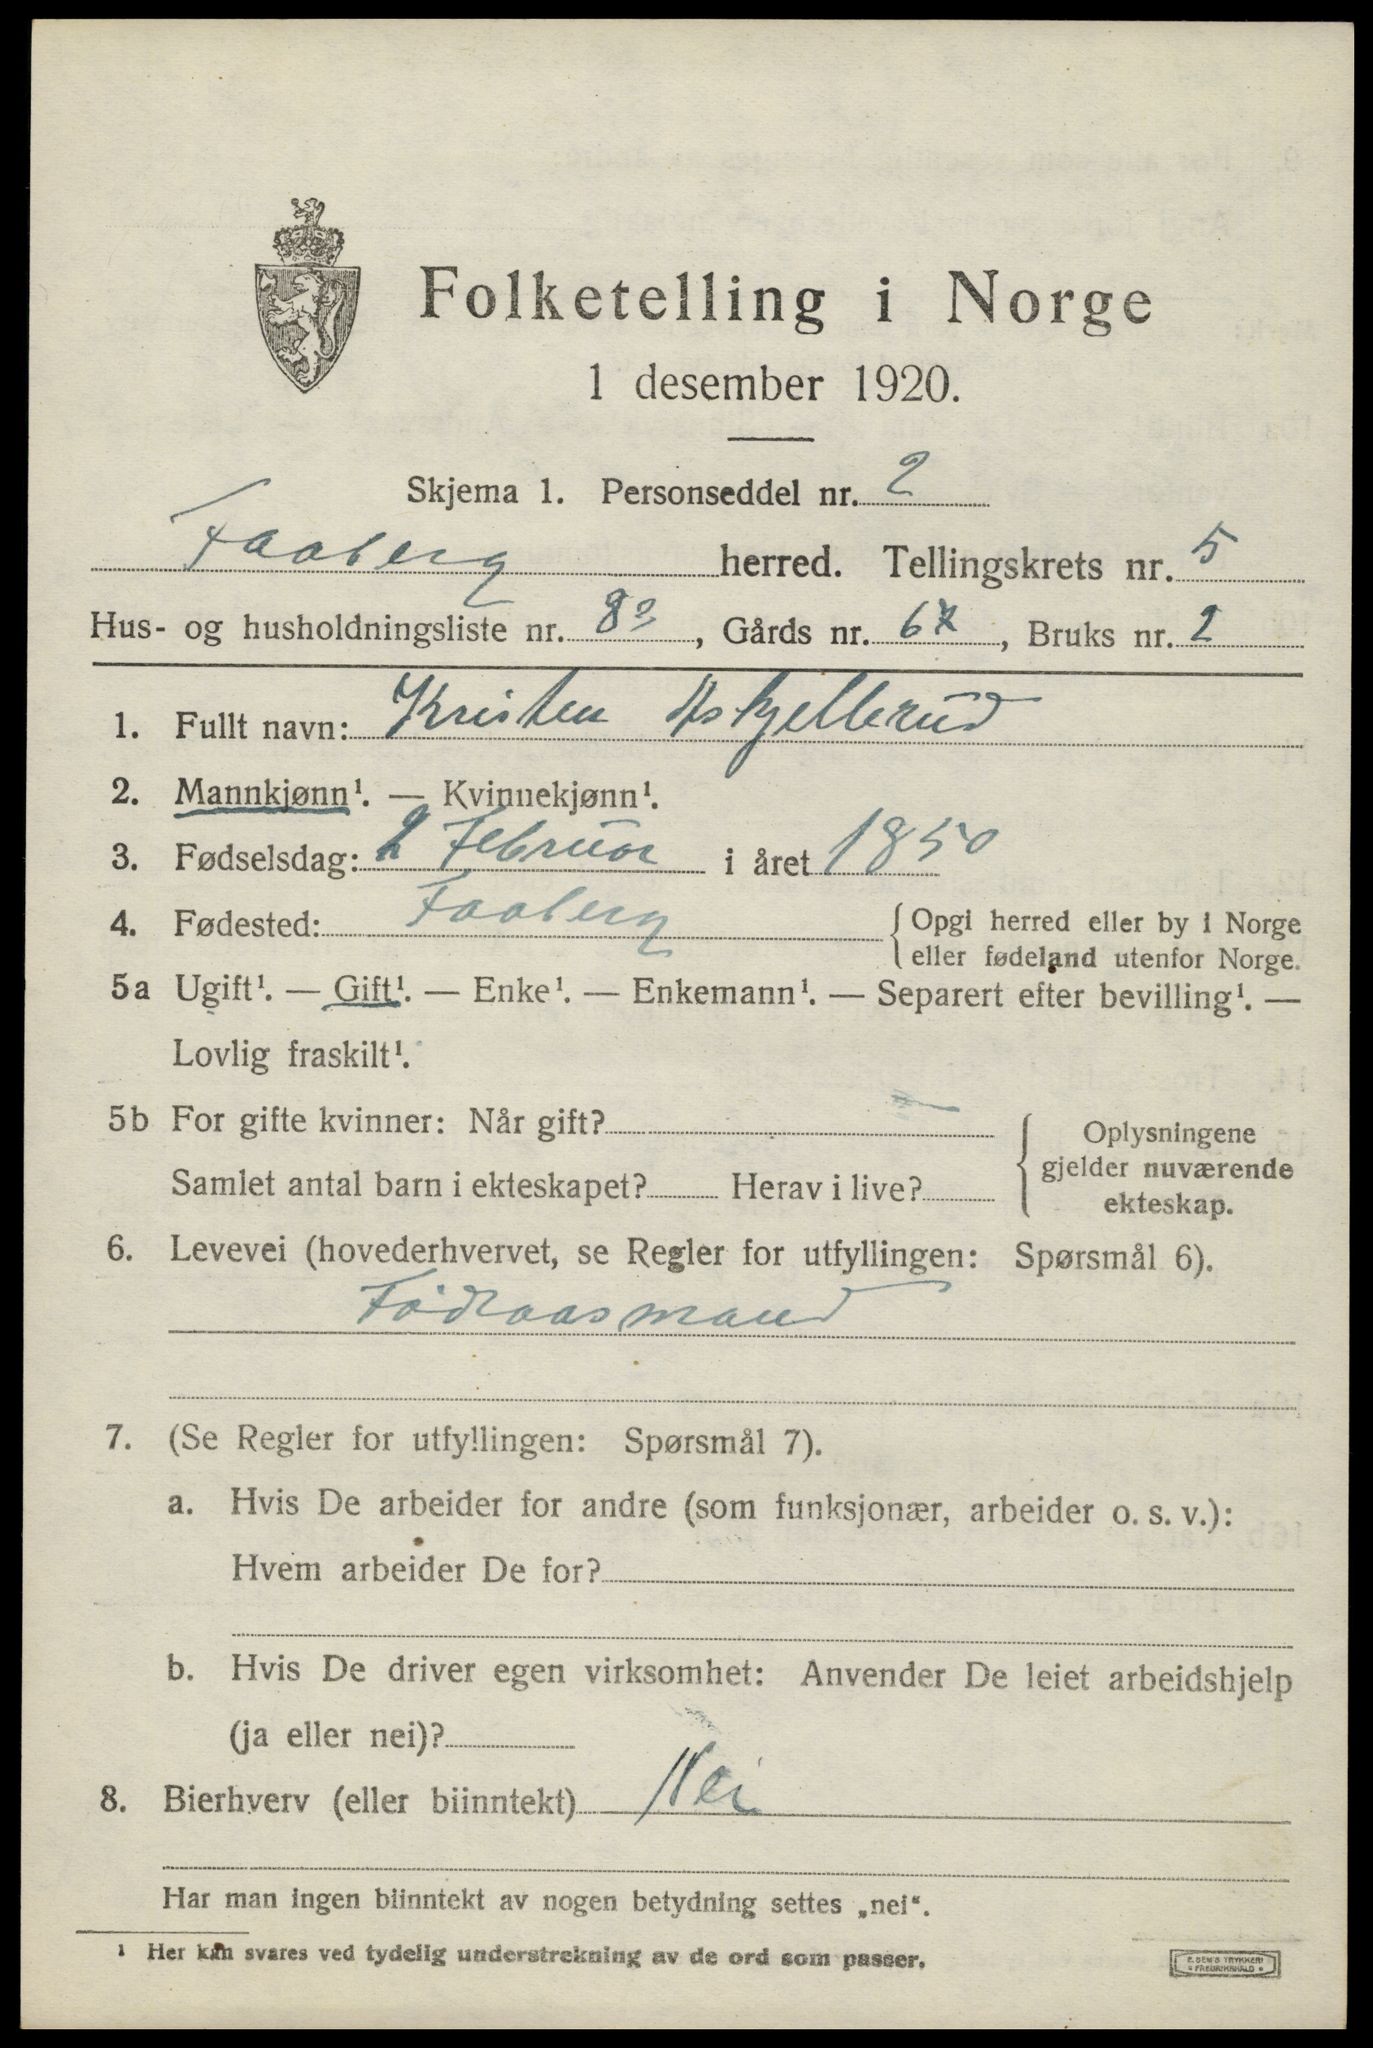 Folketelling i Norge
1 desember 1920.
Skjema 1. Personseddel nr. 2
Faaberg herred. Tellingskrets nr. 5
Hus- og husholdningsliste nr. 83, Gårds nr. 67, Bruks nr. 2
1. Fullt navn: Kristen Askjellerud
2. Mannkjønn¹. — Kvinnekjønn¹.
3. Fødselsdag: 2 Februar i året 1850
4. Fødested: Faaberg { Opgi herred eller by i Norge
eller fødeland utenfor Norge.
5a Ugift¹. — Gift¹. — Enke¹. — Enkemann¹. — Separert efter bevilling¹. —
Lovlig fraskilt¹.
5b For gifte kvinner: Når gift? { Oplysningene
gjelder nuværende
ekteskap.
Samlet antal barn i ekteskapet? Herav i live?
6. Levevei (hovederhvervet, se Regler for utfyllingen: Spørsmål 6).
Födraasmand
7. (Se Regler for utfyllingen: Spørsmål 7).
a. Hvis De arbeider for andre (som funksjonær, arbeider o. s. v.):
Hvem arbeider De for?
b. Hvis De driver egen virksomhet: Anvender De leiet arbeidshjelp
(ja eller nei)?
8. Bierhverv (eller biinntekt) Nei
Har man ingen biinntekt av nogen betydning settes „nei“.
¹ Her kan svares ved tydelig understrekning av de ord som passer.
E. SEM'S TRYKKERI
FREDRIKSHALD